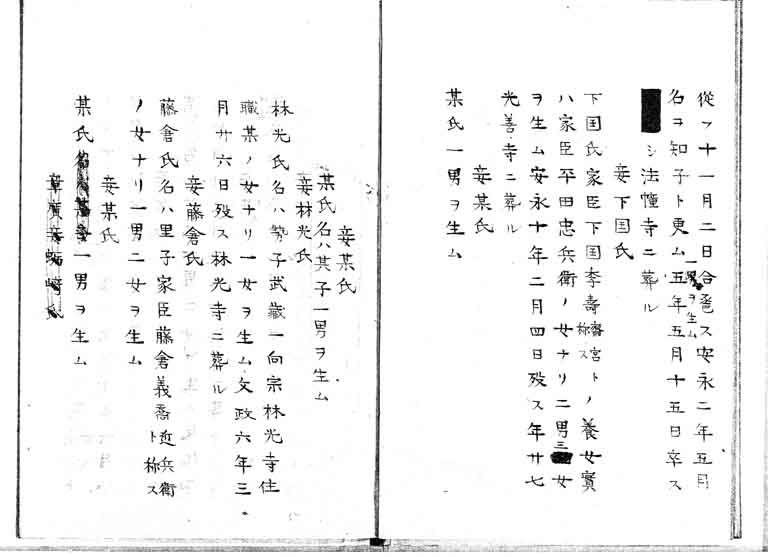 從ツ十一月二日合巹ス安永二年五月
一男ヲ生ム
名ヲ知子ト更ム五年五月十五日卒ス
シ法幢寺ニ葬ル
妾下国氏
下国氏家臣下国李壽齋宮ト称スノ養女實
ハ家臣平田忠兵衛ノ女ナリ二男三女
ヲ生ム安永十年二月四日歿ス年廿七
光善寺ニ葬ル
妾某氏
某氏一男ヲ生ム
妾某氏
某氏名ハ其子一男ヲ生ム
妾林光氏
林光氏名ハ勢子武藏一向宗林光寺住
職某ノ女ナリ一女ヲ生ム文政六年三
月廿六日歿ス林光寺ニ葬ル
妾藤倉氏
藤倉氏名ハ里子家臣藤倉義喬近兵衛ト称ス
ノ女ナリ一男二女ヲ生ム
妾某氏
某氏一男ヲ生ム
章廣妾蛎崎氏